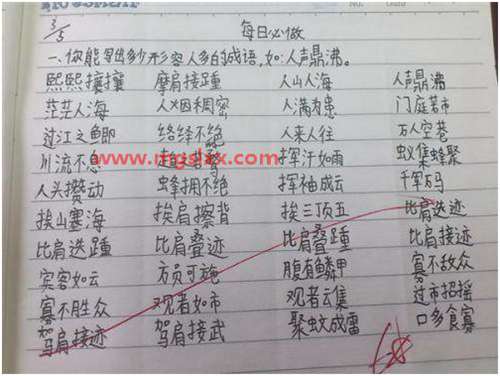 3/5 每日必做
一、你能写出多少形容人多的成语,如:人声鼎沸。
熙熙攘攘 摩肩接踵 人山人海 人声鼎沸
茫茫人海 人烟稠密 人满为患 门庭若市
过江之鲫 络绎不绝 人来人往 万人空巷
川流不息 挥汗如雨 蚁集蜂聚
www.mgslzx.com
人头攒动 蜂拥不绝 挥袖成云 千军万马
挨山塞海 挨肩擦背 挨三顶五 比肩迭迹
比肩迭踵 比肩叠迹 比肩叠踵 比肩接迹
宾客如云 方员可施 腹有鳞甲 寡不敌众
寡不胜众 观者如市 观者云集 过市招摇
驾肩接迹 驾肩接武 聚蚊成雷 口多食寡